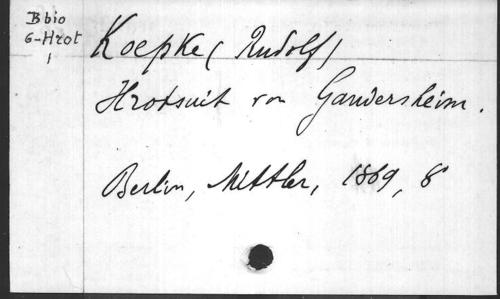 B bio
6-Hrot
1
Koepke (Rudolf)
Hrotsuit von Gandersheim.
Berlin, Mittler, 1869, 8°